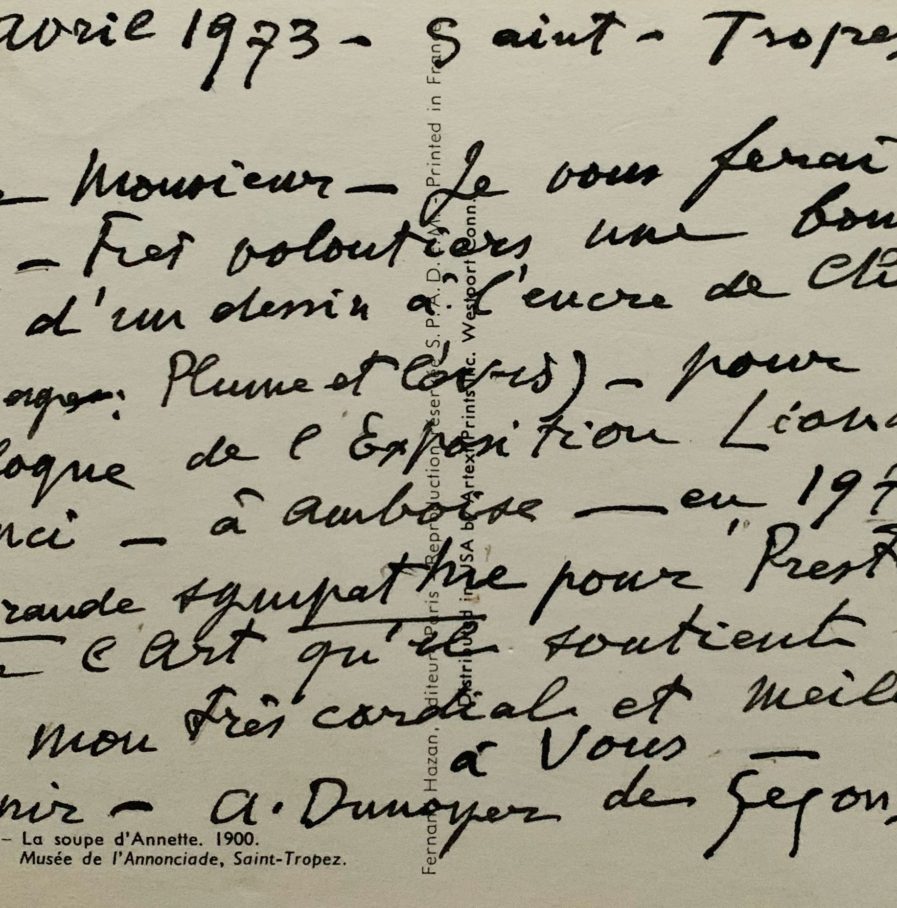 avril 1973 - Saint - Tropez
Monsieur - Je vous ferai
- Très volontiers une bon
d'un dessin à l'encre de Chi
Plume et lavis) - pour
logue de l'Exposition Léona
nci - à Amboise - en 197
rande sympathie pour Prest
l'Art qu'il soutient
mon très cordial et meill
à Vous -
nir - A. Dunoyer de Segon
- La soupe d'Annette. 1900.
Musée de l'Annonciade, Saint-Tropez.
Fernand Hazan, éditeur, Paris Reproduction réservée S.P.A.D.E.M. - Printed in France
Distributed in USA by Artext Prints Inc. Westport Conn.